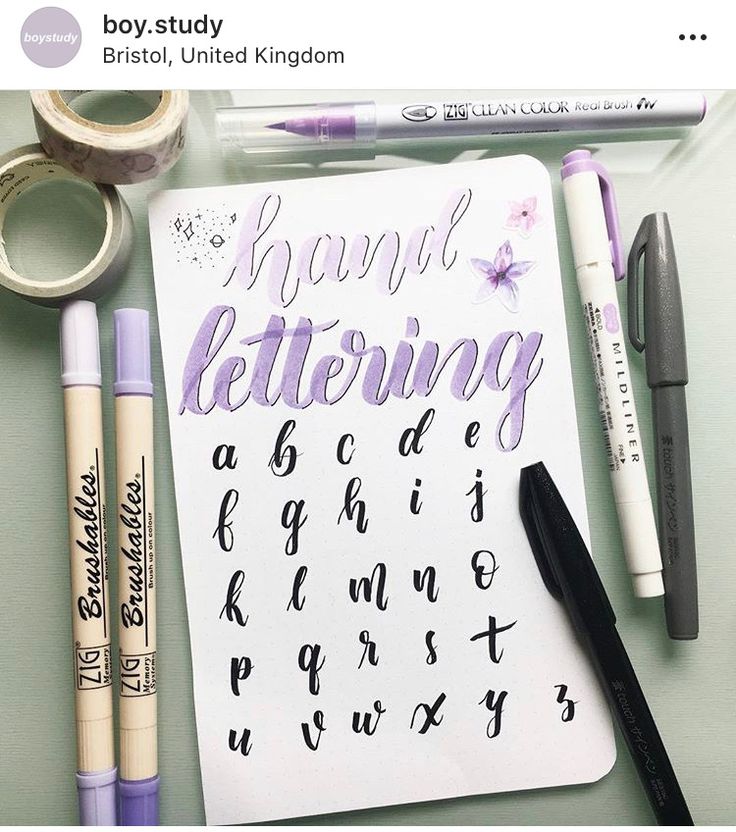 boystudy
boy.study
Bristol, United Kingdom
ZIG CLEAN COLOR Real Brush
hand
lettering
a b c d e
f g h i j
k l m n o
p q r s t
u v w x y z
ZIG Memory System Brushables® Brush up on colour
ZIG Memory System Brushables® Brush up on colour
BOLD MILDLINER FINE
touch サインペン
touch サインペン